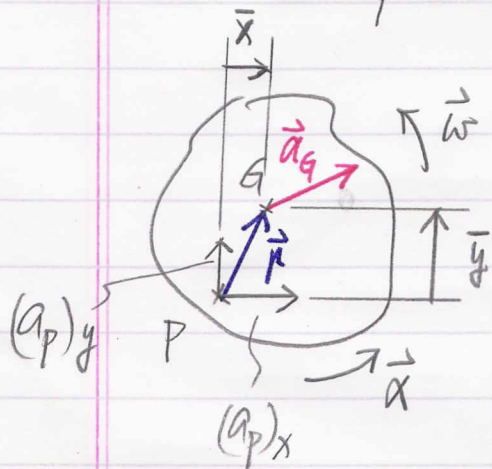 x̄
G
a⃗_G
ω⃗
r⃗
ȳ
(a_p)_y
P
α⃗
(a_p)_x